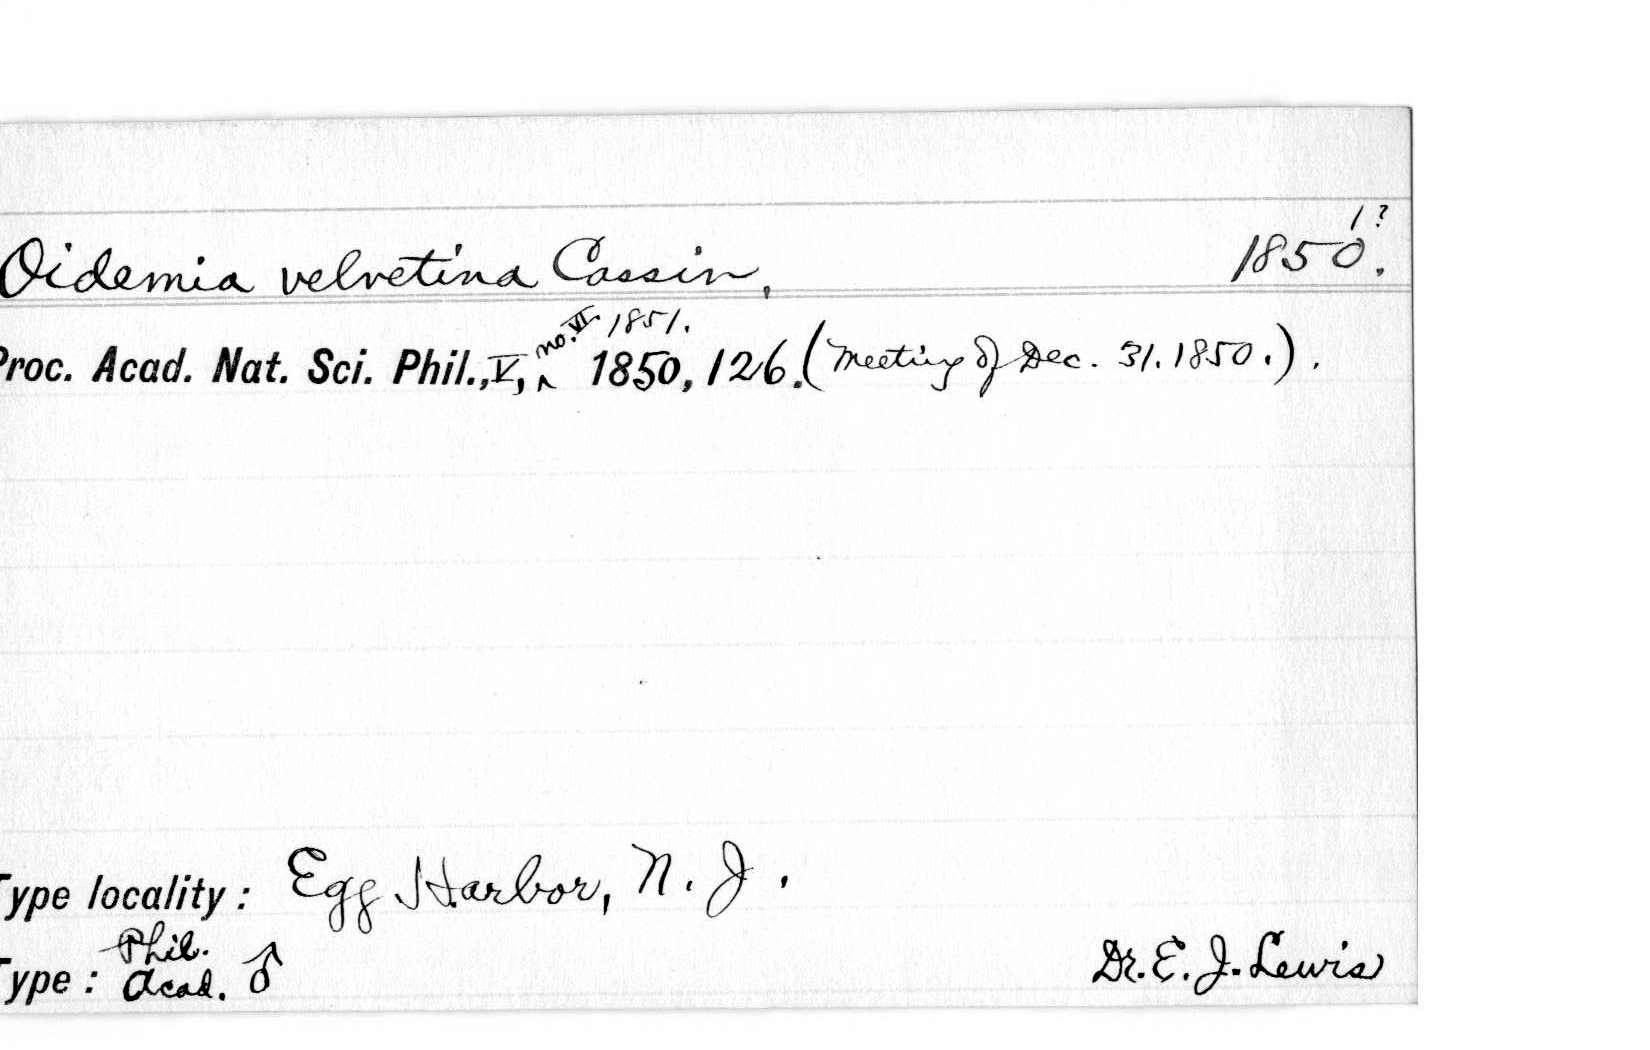 1?
Oidemia velvetina Cassin, 1850.
no. VI. 1851.
Proc. Acad. Nat. Sci. Phil., V, ^ 1850, 126. (Meeting of Dec. 31. 1850.).
Type locality: Egg Harbor, N. J.
Phil.
Type: Acad. ♂ Dr. E. J. Lewis